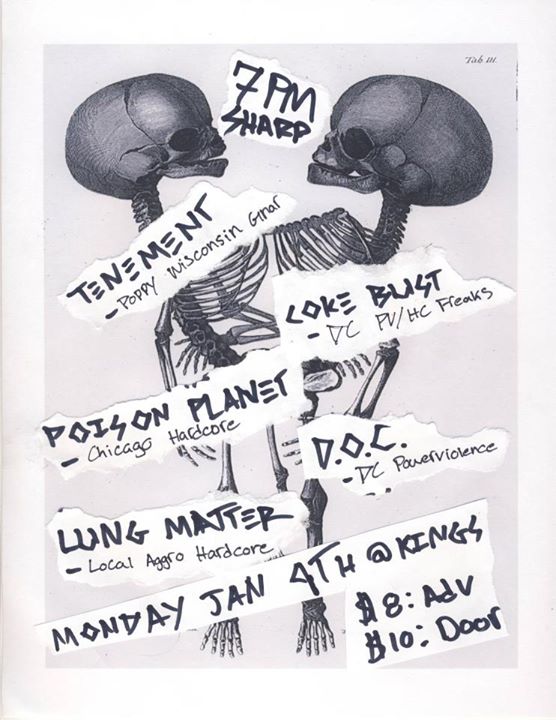 Tab III.
7 PM
SHARP
TENEMENT
- Poppy Wisconsin Gnar
COKE BUST
- DC PV/HC Freaks
POISON PLANET
- Chicago Hardcore
D.O.C.
- DC Powerviolence
LUNG MATTER
- Local Aggro Hardcore
MONDAY JAN 4TH @ KINGS
$8: Adv
$10: Door